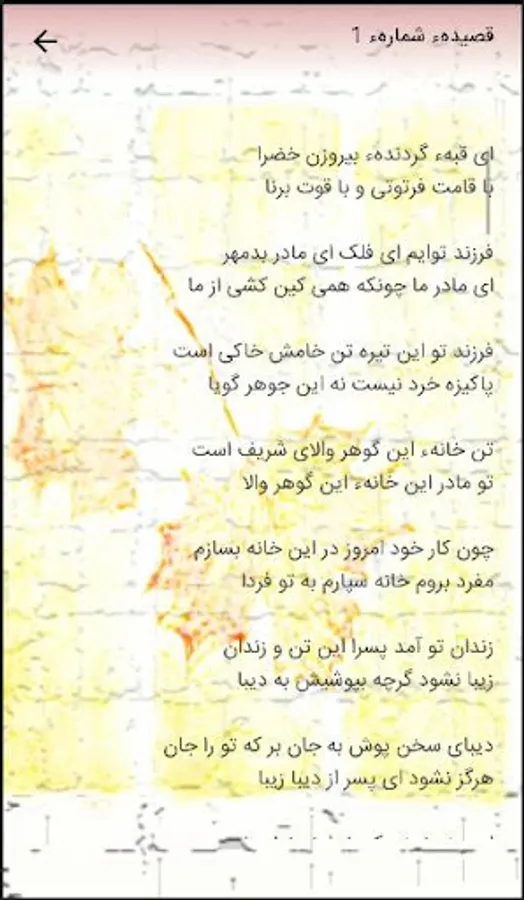 قصیدهء شمارهء 1
ای قبهء گردندهء بیروزن خضرا
با قامت فرتوتی و با قوت برنا
فرزند توایم ای فلک ای مادر بدمهر
ای مادر ما چونکه همی کین کشی از ما
فرزند تو این تیره تن خامش خاکی است
پاکیزه خرد نیست نه این جوهر گویا
تن خانهء این گوهر والای شریف است
تو مادر این خانهء این گوهر والا
چون کار خود امروز در این خانه بسازم
مفرد بروم خانه سپارم به تو فردا
زندان تو آمد پسرا این تن و زندان
زیبا نشود گرچه بپوشیش به دیبا
دیبای سخن پوش به جان بر که تو را جان
هرگز نشود ای پسر از دیبا زیبا